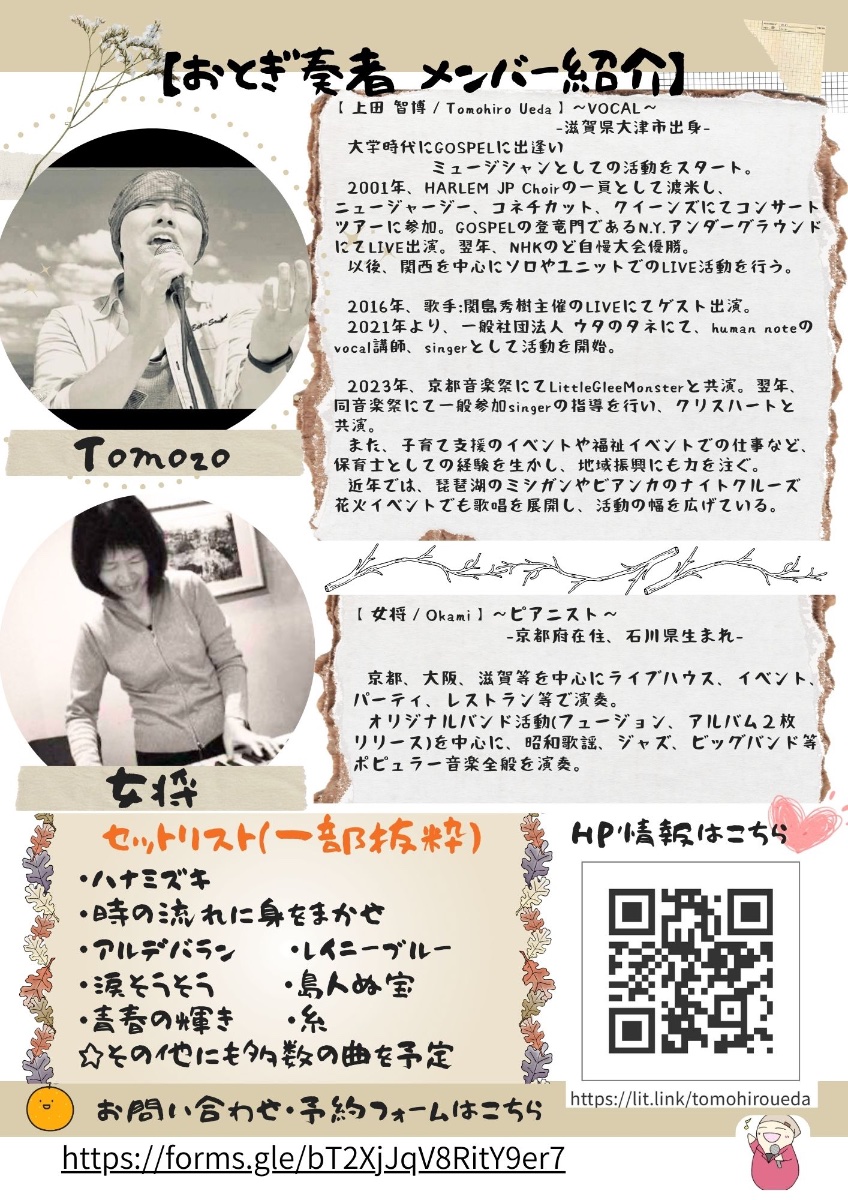 【おとぎ奏者 メンバー紹介】
【 上田 智博 / Tomohiro Ueda 】～VOCAL～
-滋賀県大津市出身-
大学時代にGOSPELに出逢い
ミュージシャンとしての活動をスタート。
2001年、HARLEM JP Choirの一員として渡米し、
ニュージャージー、コネチカット、クイーンズにてコンサート
ツアーに参加。GOSPELの登竜門であるN.Y.アンダーグラウンド
にてLIVE出演。翌年、NHKのど自慢大会優勝。
以後、関西を中心にソロやユニットでのLIVE活動を行う。
2016年、歌手:関島秀樹主催のLIVEにてゲスト出演。
2021年より、一般社団法人 ウタのタネにて、human noteの
vocal講師、singerとして活動を開始。
2023年、京都音楽祭にてLittleGleeMonsterと共演。翌年、
同音楽祭にて一般参加singerの指導を行い、クリスハートと
共演。
また、子育て支援のイベントや福祉イベントでの仕事など、
保育士としての経験を生かし、地域振興にも力を注ぐ。
近年では、琵琶湖のミシガンやビアンカのナイトクルーズ
花火イベントでも歌唱を展開し、活動の幅を広げている。
Tomozo
【 女将 / Okami 】～ピアニスト～
-京都府在住、石川県生まれ-
京都、大阪、滋賀等を中心にライブハウス、イベント、
パーティ、レストラン等で演奏。
オリジナルバンド活動(フュージョン、アルバム２枚
リリース)を中心に、昭和歌謡、ジャズ、ビッグバンド等
ポピュラー音楽全般を演奏。
女将
セットリスト(一部抜粋)
・ハナミズキ
・時の流れに身をまかせ
・アルデバラン ・レイニーブルー
・涙そうそう ・島人ぬ宝
・青春の輝き ・糸
☆その他にも多数の曲を予定
HP情報はこちら
https://lit.link/tomohiroueda
お問い合わせ・予約フォームはこちら
https://forms.gle/bT2XjJqV8RitY9er7